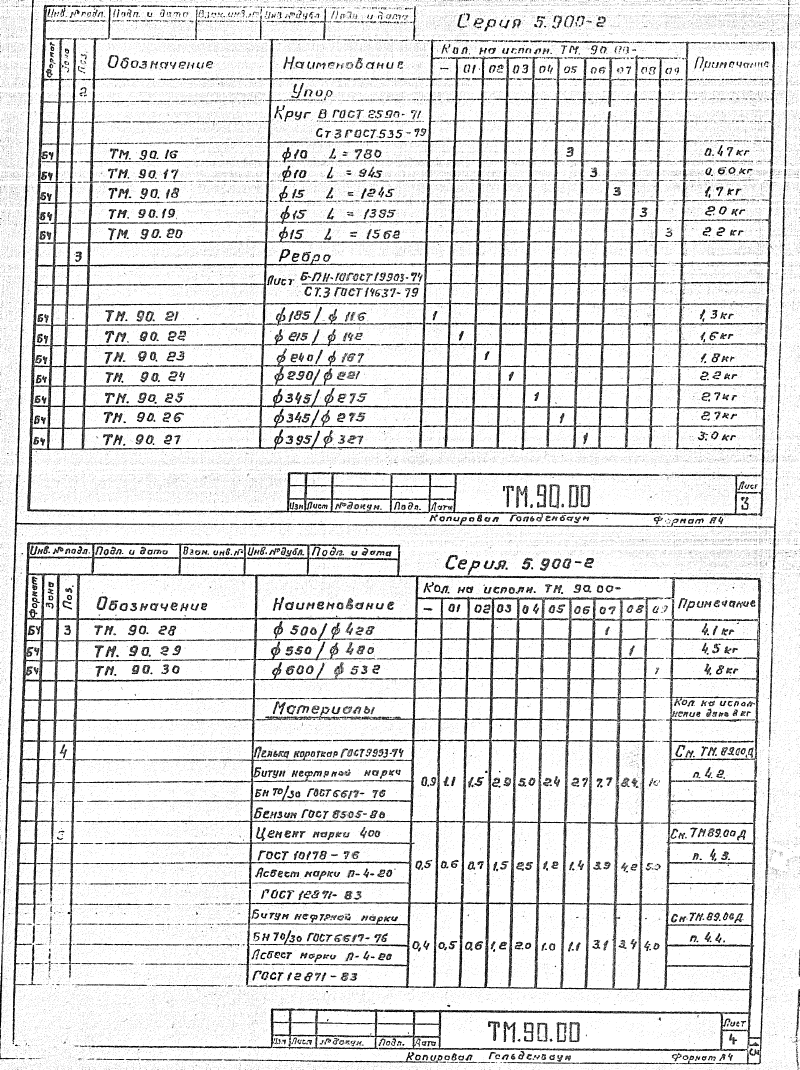 Инв. № подл. Подп. и дата Взам. инв. № Инв. № дубл. Подп. и дата
Серия 5.900-2
Формат Зона Поз. Обозначение Наименование Кол. на исполн. ТМ. 90.00- Примечание
– 01 02 03 04 05 06 07 08 09
2 Упор
Круг В ГОСТ 2590-71
Ст 3 ГОСТ 535-79
БЧ ТМ. 90. 16 ф10 L = 780 3 0.47 кг
БЧ ТМ. 90. 17 ф10 L = 945 3 0,60 кг
БЧ ТМ. 90. 18 ф15 L = 1245 3 1,7 кг
БЧ ТМ. 90. 19 ф15 L = 1385 3 2.0 кг
БЧ ТМ. 90. 20 ф15 L = 1562 3 2.2 кг
3 Ребро
Лист Б-ПН-10 ГОСТ 19903-74
СТ.3 ГОСТ 14637-79
БЧ ТМ. 90. 21 ф185/ф 116 1 1,3 кг
БЧ ТМ. 90. 22 ф215/ф 142 1 1,6 кг
БЧ ТМ. 90. 23 ф240/ф 167 1 1,8 кг
БЧ ТМ. 90. 24 ф290/ф 221 1 2.2 кг
БЧ ТМ. 90. 25 ф345/ф 275 1 2.7 кг
БЧ ТМ. 90. 26 ф345/ф 275 1 2,7 кг
БЧ ТМ. 90. 27 ф395/ф 327 1 3.0 кг
Изм Лист № докум. Подп. Дата
ТМ.90.00
Лист
3
Копировал Гольденбаум Формат А4
Инв. № подл. Подп. и дата Взам. инв. № Инв. № дубл. Подп. и дата
Серия. 5.900-2
Формат Зона Поз. Обозначение Наименование Кол. на исполн. ТМ. 90.00- Примечание
– 01 02 03 04 05 06 07 08 09
БЧ 3 ТМ. 90. 28 ф 500/ф 428 1 4.1 кг
БЧ ТМ. 90. 29 ф 550/ф 480 1 4,5 кг
БЧ ТМ. 90. 30 ф 600/ф 532 1 4,8 кг
Материалы Кол. на испол-
нение дано в кг
4 Пенька короткая ГОСТ 9993-74 См. ТМ. 89.00Д
Битум нефтяной марки п. 4.2.
БН 70/30 ГОСТ 6617-76 0,9 1.1 1.5 2.9 5.0 2.4 2.7 7.7 8.4 10
Бензин ГОСТ 8505-80
Цемент марки 400 См. ТМ 89.00Д
ГОСТ 10178-76 п. 4.3.
Асбест марки П-4-20 0,5 0.6 0.7 1,5 2,5 1,2 1.4 3.9 4,2 5.0
ГОСТ 12871-83
Битум нефтяной марки См ТМ. 89.00Д
БН 70/30 ГОСТ 6617-76 п. 4.4.
Асбест марки П-4-20 0,4 0,5 0,6 1,2 2.0 1.0 1.1 3.1 3.4 4.0
ГОСТ 12871-83
Изм Лист № докум. Подп. Дата
ТМ.90.00
Лист
4
Копировал Гольденбаум Формат А4